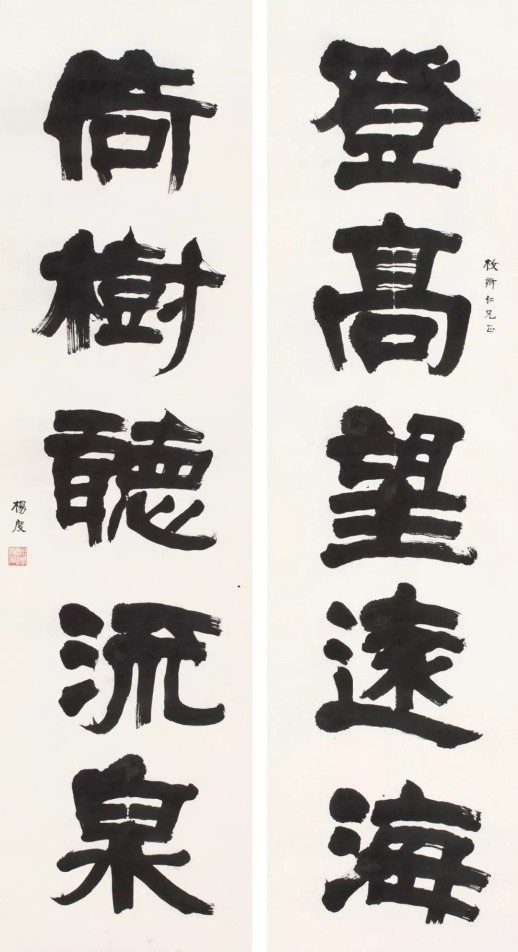 登高望遠海
仁兄正
倚樹聽流泉
楊度